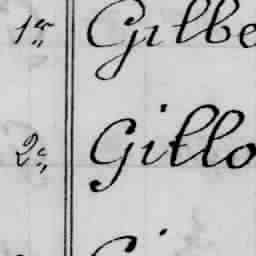 1er Gilbe
2e Gillo